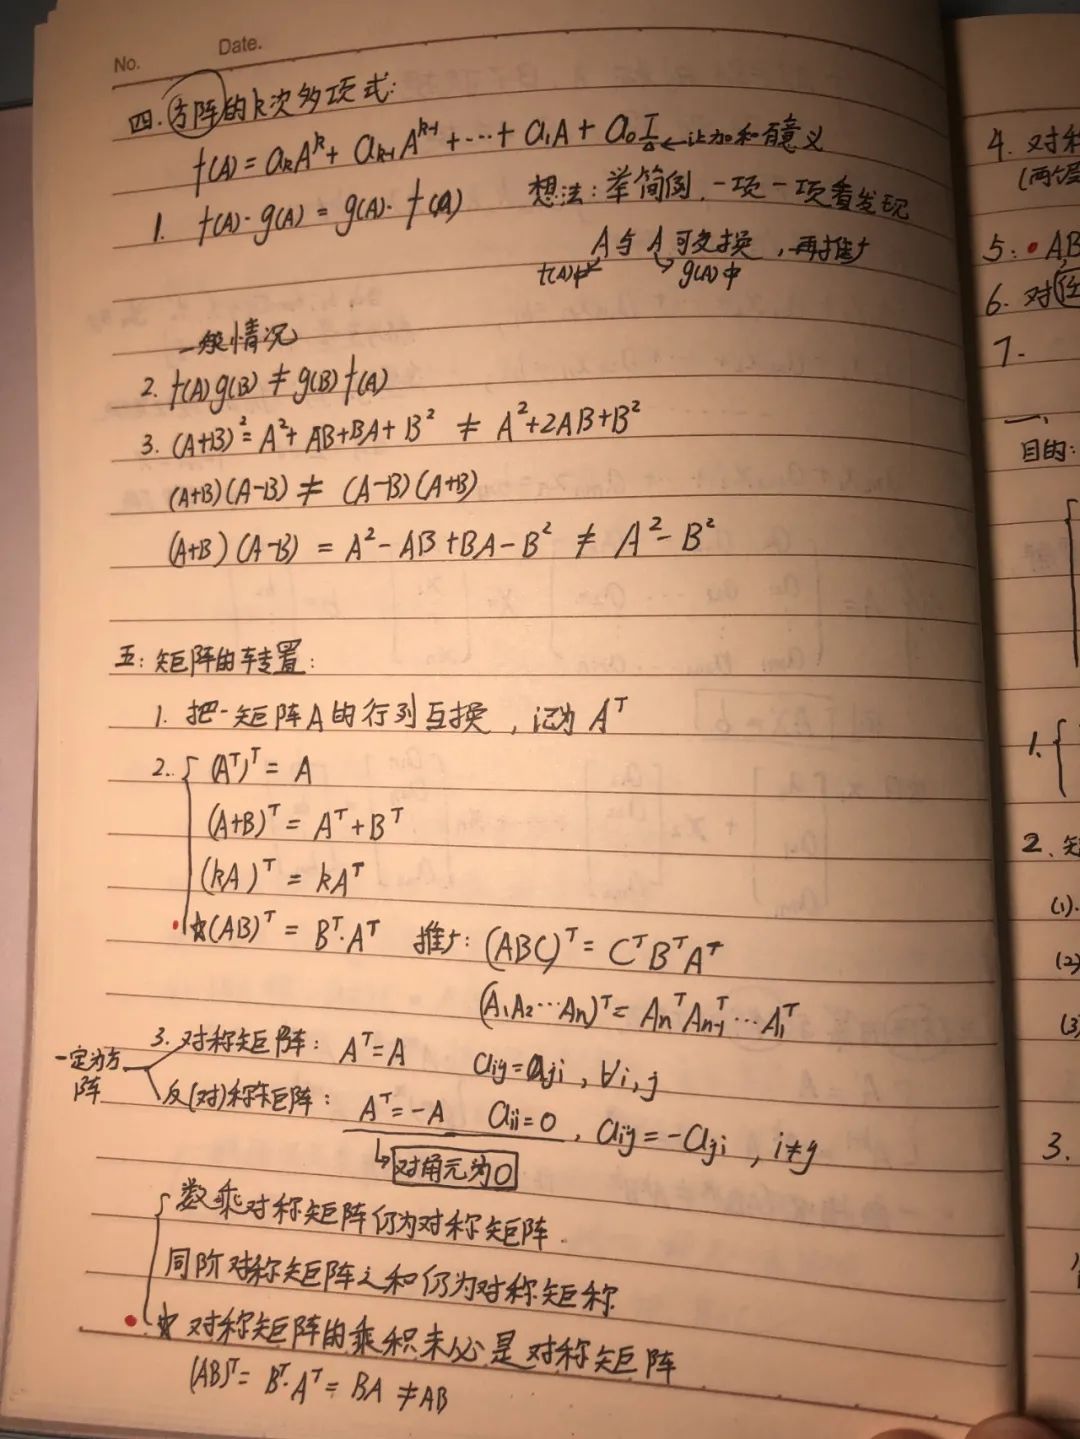 No.
Date.
四.方阵的k次多项式:
f(A) = aₖAᵏ + aₖ₋₁Aᵏ⁻¹ + ⋯ + a₁A + a₀I ← 让加和有意义
1. f(A)·g(A) = g(A)·f(A) 想法:举简例,一项一项看发现
A与A可交换,再推广
f(A)中 g(A)中
一般情况
2. f(A)g(B) ≠ g(B)f(A)
3. (A+B)² = A²+AB+BA+B² ≠ A²+2AB+B²
(A+B)(A-B) ≠ (A-B)(A+B)
(A+B)(A-B) = A²-AB+BA-B² ≠ A²-B²
五:矩阵的转置:
1. 把一矩阵A的行列互换,记为Aᵀ
2. (Aᵀ)ᵀ = A
(A+B)ᵀ = Aᵀ+Bᵀ
(kA)ᵀ = kAᵀ
☆(AB)ᵀ = Bᵀ·Aᵀ 推广:(ABC)ᵀ = CᵀBᵀAᵀ
(A₁A₂⋯Aₙ)ᵀ = AₙᵀAₙ₋₁ᵀ⋯A₁ᵀ
一定为方阵
3. 对称矩阵: Aᵀ=A aᵢⱼ=aⱼᵢ, ∀i,j
反(对)称矩阵: Aᵀ=-A aᵢᵢ=0, aᵢⱼ=-aⱼᵢ, i≠j
↳ 对角元为0
数乘对称矩阵仍为对称矩阵.
同阶对称矩阵之和仍为对称矩称
☆ 对称矩阵的乘积未必是对称矩阵
(AB)ᵀ = Bᵀ·Aᵀ = BA ≠ AB
4. 对
5: AB
6. 对任
7.
一、
目的:
1.
2、
(1).
(2)
(3)
3.